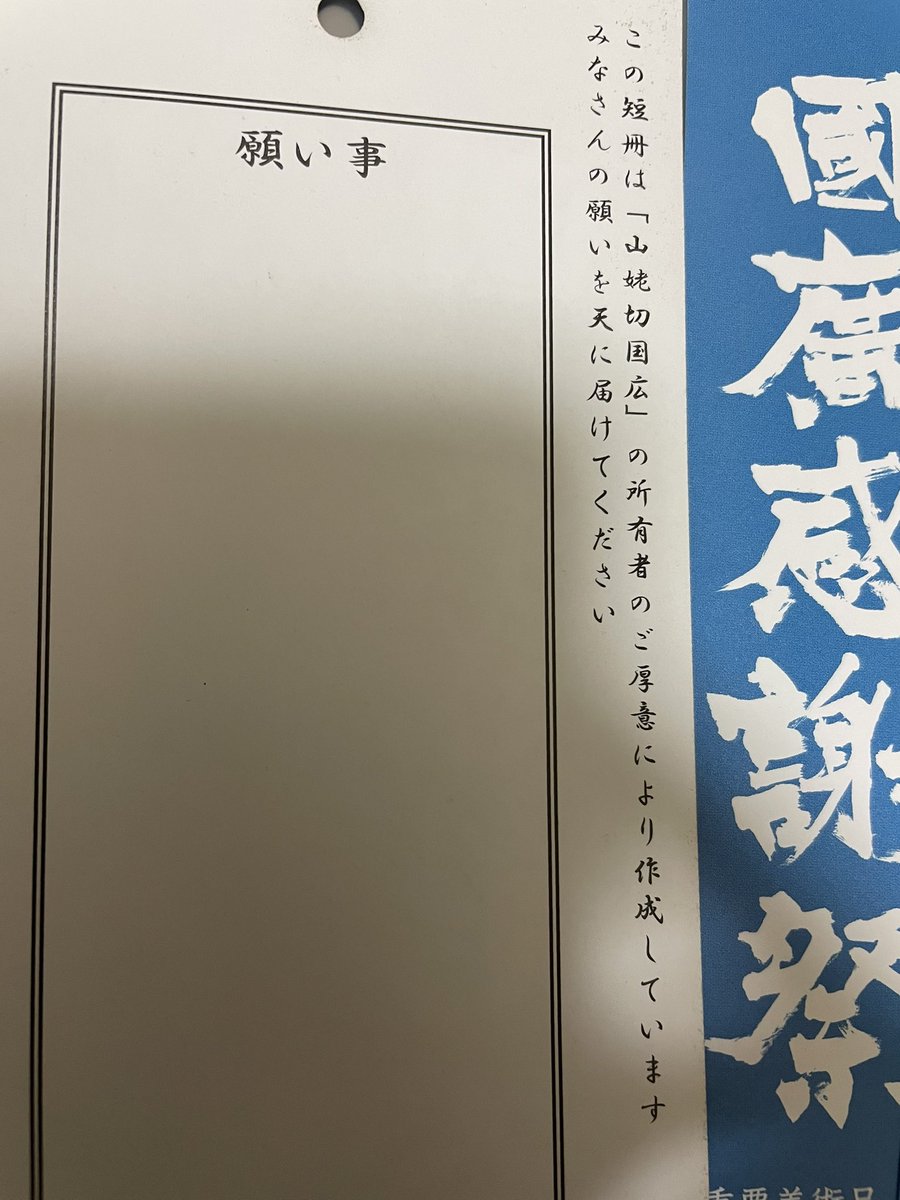 國廣感謝祭
重要美術品
この短冊は「山姥切国広」の所有者のご厚意により作成しています
みなさんの願いを天に届けてください
願い事